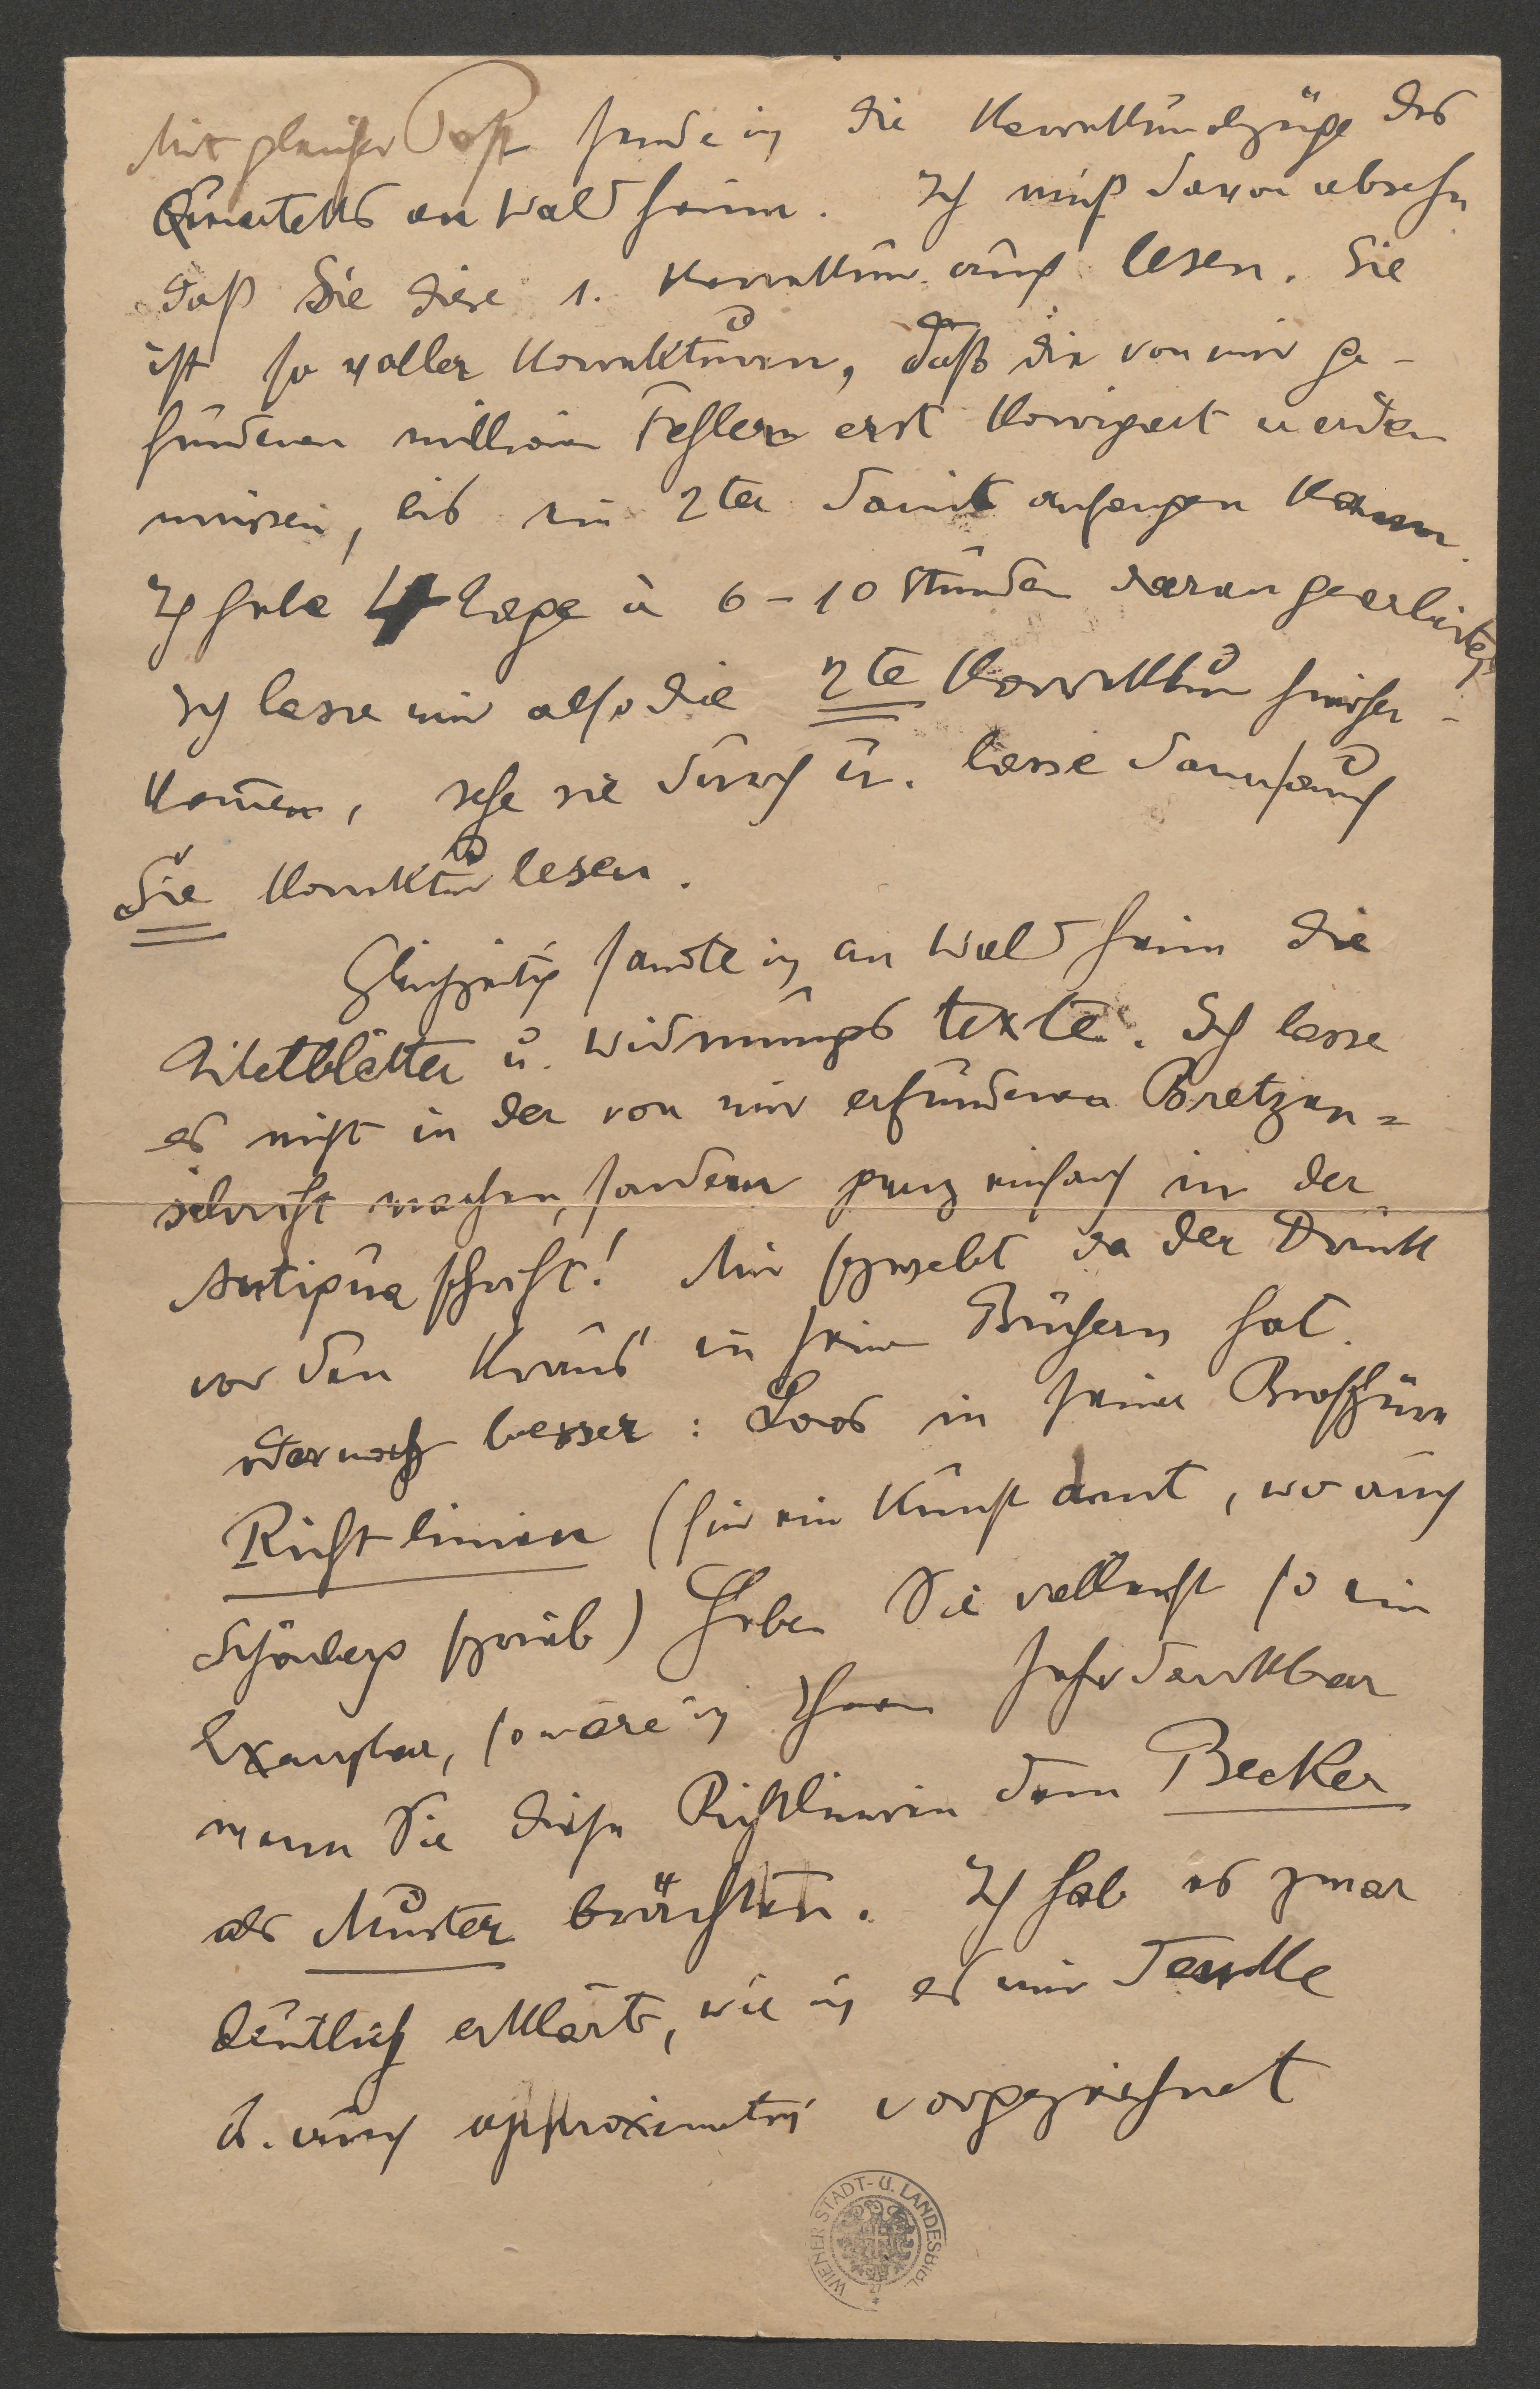 Mit gleicher Post sende ich die Korrekturabzüge des
Quartetts an Waldheim. Ich muß davon absehn
daß Sie diese 1. Korrektur auch lesen. Sie
ist so voller Korrekturen, daß die von mir ge-
fundenen million Fehlern erst korrigiert werden
müssen, bis ein 2ter damit anfangen kann.
Ich habe 4 Tage à 6-10 Stunden daran gearbeitet.
Ich lasse mir also die 2te Korrektur hieher-
kom̄en, sehe sie durch u. lasse dann auch
Sie Korrektur lesen.
Gleichzeitig sandte ich an Waldheim die
Titelblätter u. Widmungstexte. Ich lasse
es nicht in der von mir erfundenen Bretzen=
schrift machen, sondern ganz einfach in der
Antiquaschrift! Mir schwebt da der Druck
vor den Kraus in seinen Büchern hat.
oder noch besser: Loos in seiner Broschüre
Richtlinien (für ein Kunstamt, wo auch
Schönberg schrieb) Haben Sie vielleicht so ein
Exemplar, so wäre ich Ihnen sehr dankbar
wenn Sie diese Richtlinien dem Becker
als Muster brächten. Ich hab es zwar
deutlich erklärt, wie ich es mir denke
u. auch approximativ vorgezeichnet
WIENER STADT- U. LANDESBIBL.